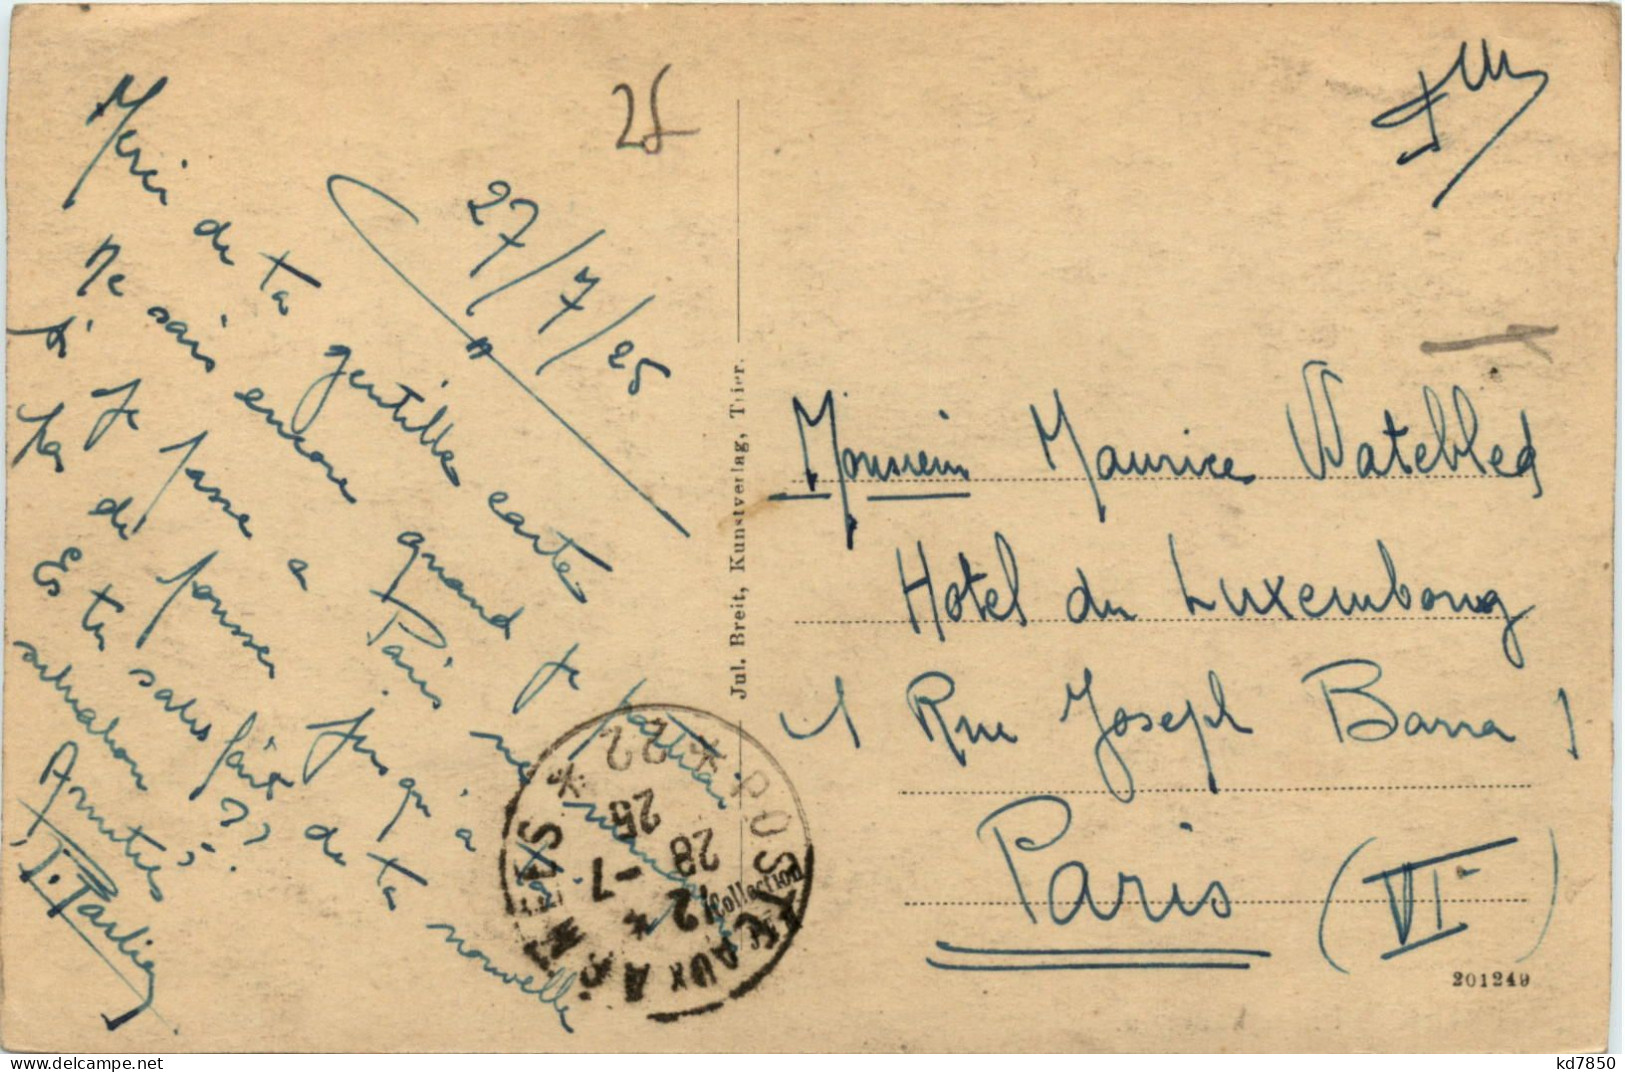 25
27/7/25
Merci de ta gentille carte
Ne sais encore quand je partirai
Si je passe à Paris ne manquerai
pas de pousser jusqu'à toi.
Es tu satisfait de ta nouvelle
situation ??
Amitiés
J. Parlier
FM
Monsieur Maurice Watebled
Hotel du Luxembourg
4 Rue Joseph Bara
Paris (VIe)
Jul. Breit, Kunstverlag, Trier.
201249
* POSTE AUX ARMÉES *
22
12 *
28 -7
25
Collection
delcampe.net
kd7850